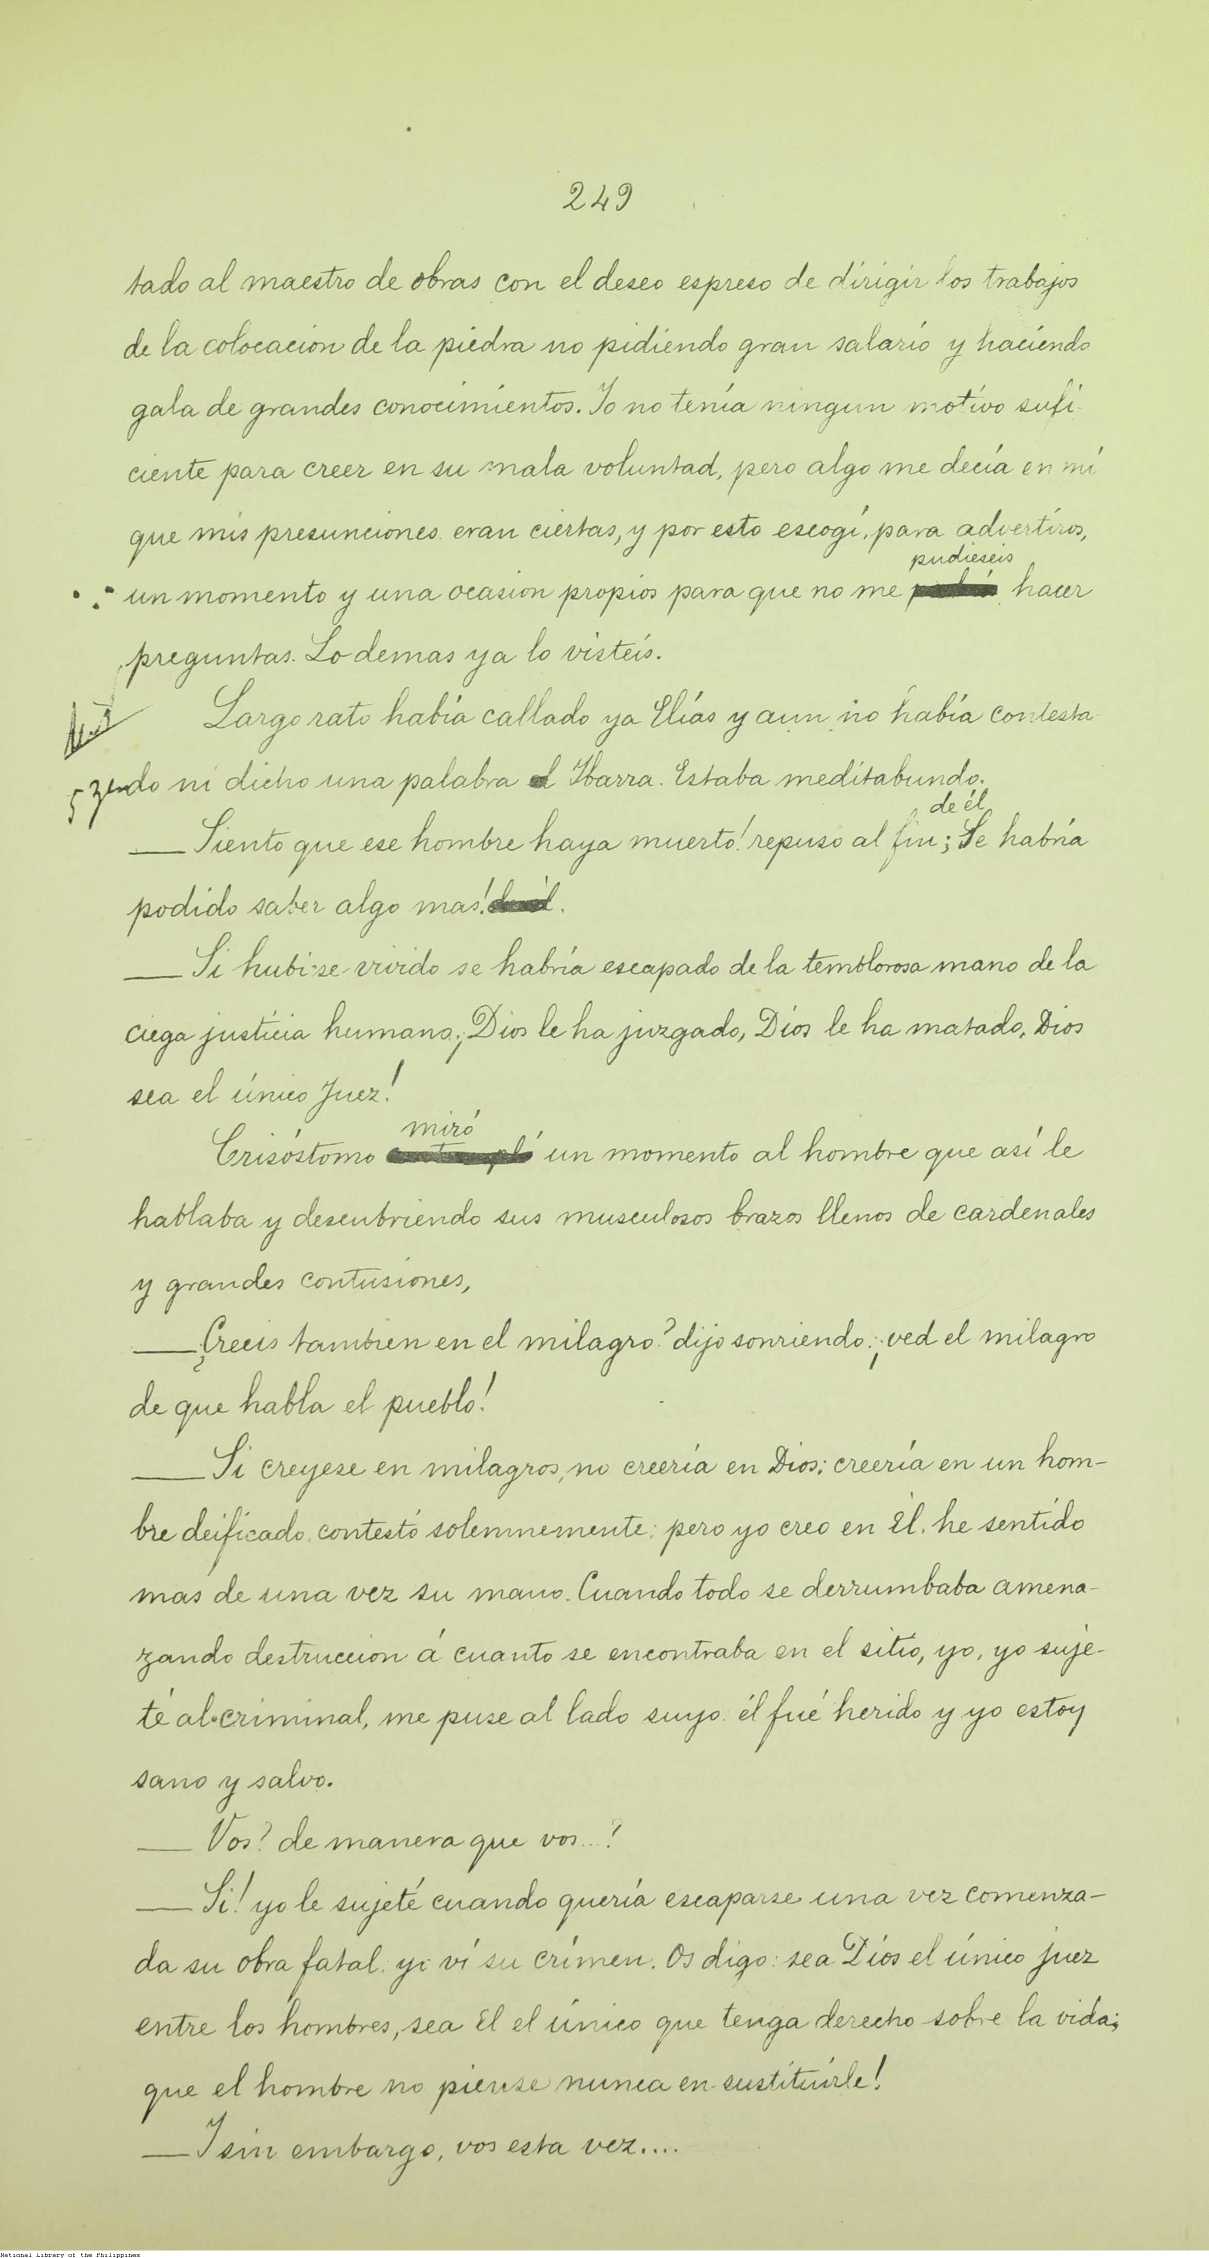 249
tado al maestro de obras con el deseo espreso de dirigir los trabajos
de la colocacion de la piedra no pidiendo gran salario y haciendo
gala de grandes conocimientos. Yo no tenía ningun motivo sufi-
ciente para creer en su mala voluntad, pero algo me decía en mí
que mis presunciones eran ciertas, y por esto escogí, para advertiros,
pudieseis
un momento y una ocasion propios para que no me hacer
preguntas. Lo demas ya lo visteis.
Largo rato había callado ya Elías y aun no había contesta-
do ni dicho una palabra Ibarra. Estaba meditabundo.
de él
— Siento que ese hombre haya muerto! repuso al fin; Se habría
podido saber algo mas!
— Si hubiese vivido se habría escapado de la temblorosa mano de la
ciega justicia humana; Dios le ha juzgado, Dios le ha matado, Dios
sea el único Juez!
miró
Crisóstomo un momento al hombre que así le
hablaba y descubriendo sus musculosos brazos llenos de cardenales
y grandes contusiones,
— ¿Creeis tambien en el milagro? dijo sonriendo; ved el milagro
de que habla el pueblo!
— Si creyese en milagros, no creería en Dios: creería en un hom-
bre deificado, contestó solemnemente; pero yo creo en Él, he sentido
mas de una vez su mano. Cuando todo se derrumbaba amena-
zando destruccion á cuanto se encontraba en el sitio, yo, yo suje-
té al criminal, me puse al lado suyo: él fué herido y yo estoy
sano y salvo.
— Vos? de manera que vos...?
— Si! yo le sujeté cuando quería escaparse una vez comenza-
da su obra fatal. yo ví su crímen. Os digo: sea Dios el único juez
entre los hombres, sea El el único que tenga derecho sobre la vida;
que el hombre no piense nunca en sustituírle!
— Y sin embargo, vos esta vez....
National Library of the Philippines